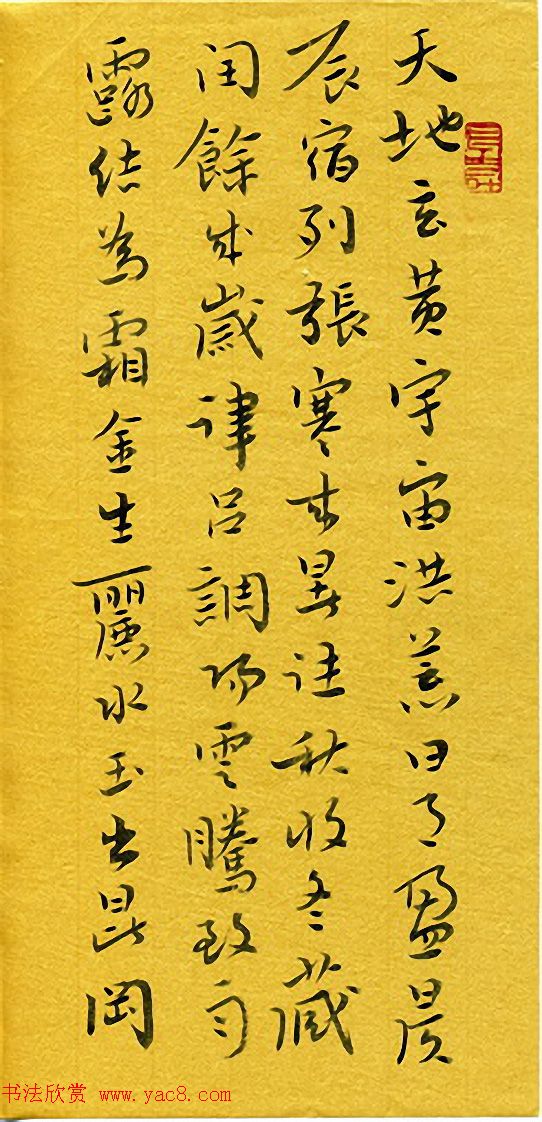 天地玄黃宇宙洪荒日月盈昃
辰宿列張寒來暑往秋收冬藏
閏餘成歲律呂調陽雲騰致雨
露結為霜金生麗水玉出崑岡
书法欣赏 www.yac8.com